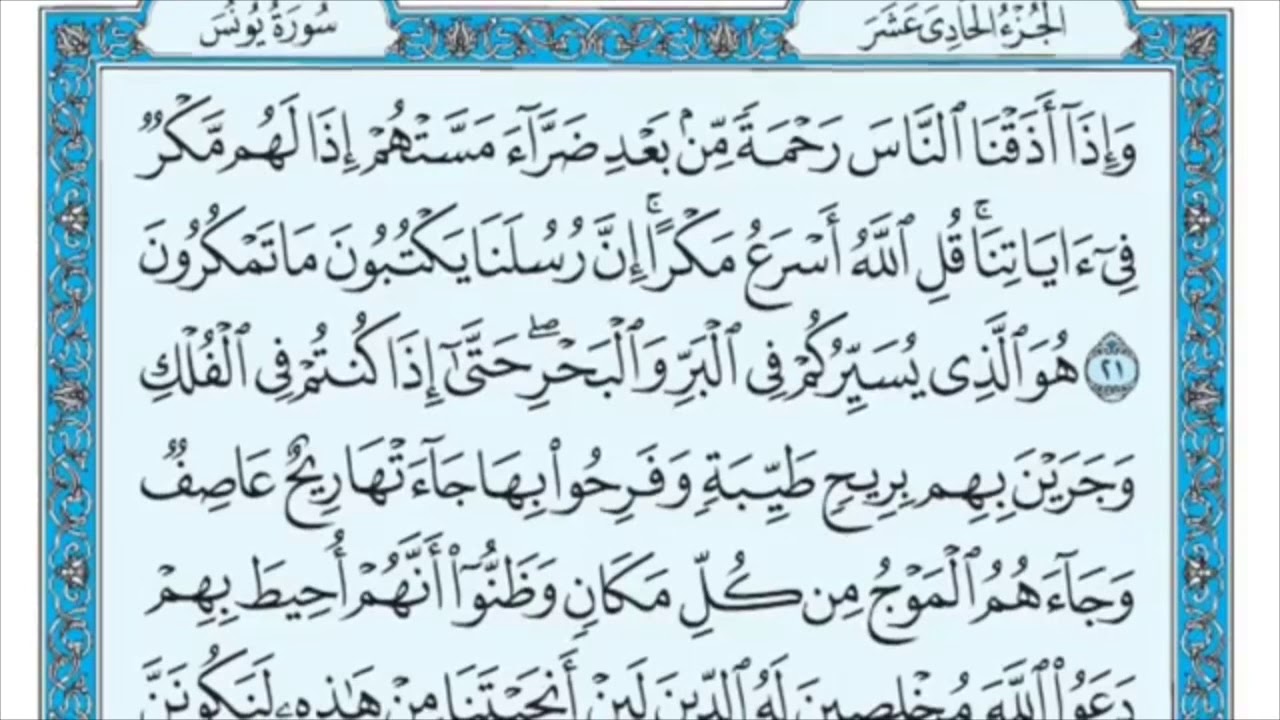 الجُزْءُ الحَادِىَ عَشَرَ
سُورَةُ يُونُسَ
وَإِذَآ أَذَقْنَا ٱلنَّاسَ رَحْمَةً مِّنۢ بَعْدِ ضَرَّآءَ مَسَّتْهُمْ إِذَا لَهُم مَّكْرٌ
فِىٓ ءَايَاتِنَاۚ قُلِ ٱللَّهُ أَسْرَعُ مَكْرًاۚ إِنَّ رُسُلَنَا يَكْتُبُونَ مَا تَمْكُرُونَ
٢١ هُوَ ٱلَّذِى يُسَيِّرُكُمْ فِى ٱلْبَرِّ وَٱلْبَحْرِۖ حَتَّىٰٓ إِذَا كُنتُمْ فِى ٱلْفُلْكِ
وَجَرَيْنَ بِهِم بِرِيحٍ طَيِّبَةٍ وَفَرِحُوا۟ بِهَا جَآءَتْهَا رِيحٌ عَاصِفٌ
وَجَآءَهُمُ ٱلْمَوْجُ مِن كُلِّ مَكَانٍ وَظَنُّوٓا۟ أَنَّهُمْ أُحِيطَ بِهِمْ
دَعَوُا۟ ٱللَّهَ مُخْلِصِينَ لَهُ ٱلدِّينَ لَئِنْ أَنجَيْتَنَا مِنْ هَٰذِهِۦ لَنَكُونَنَّ